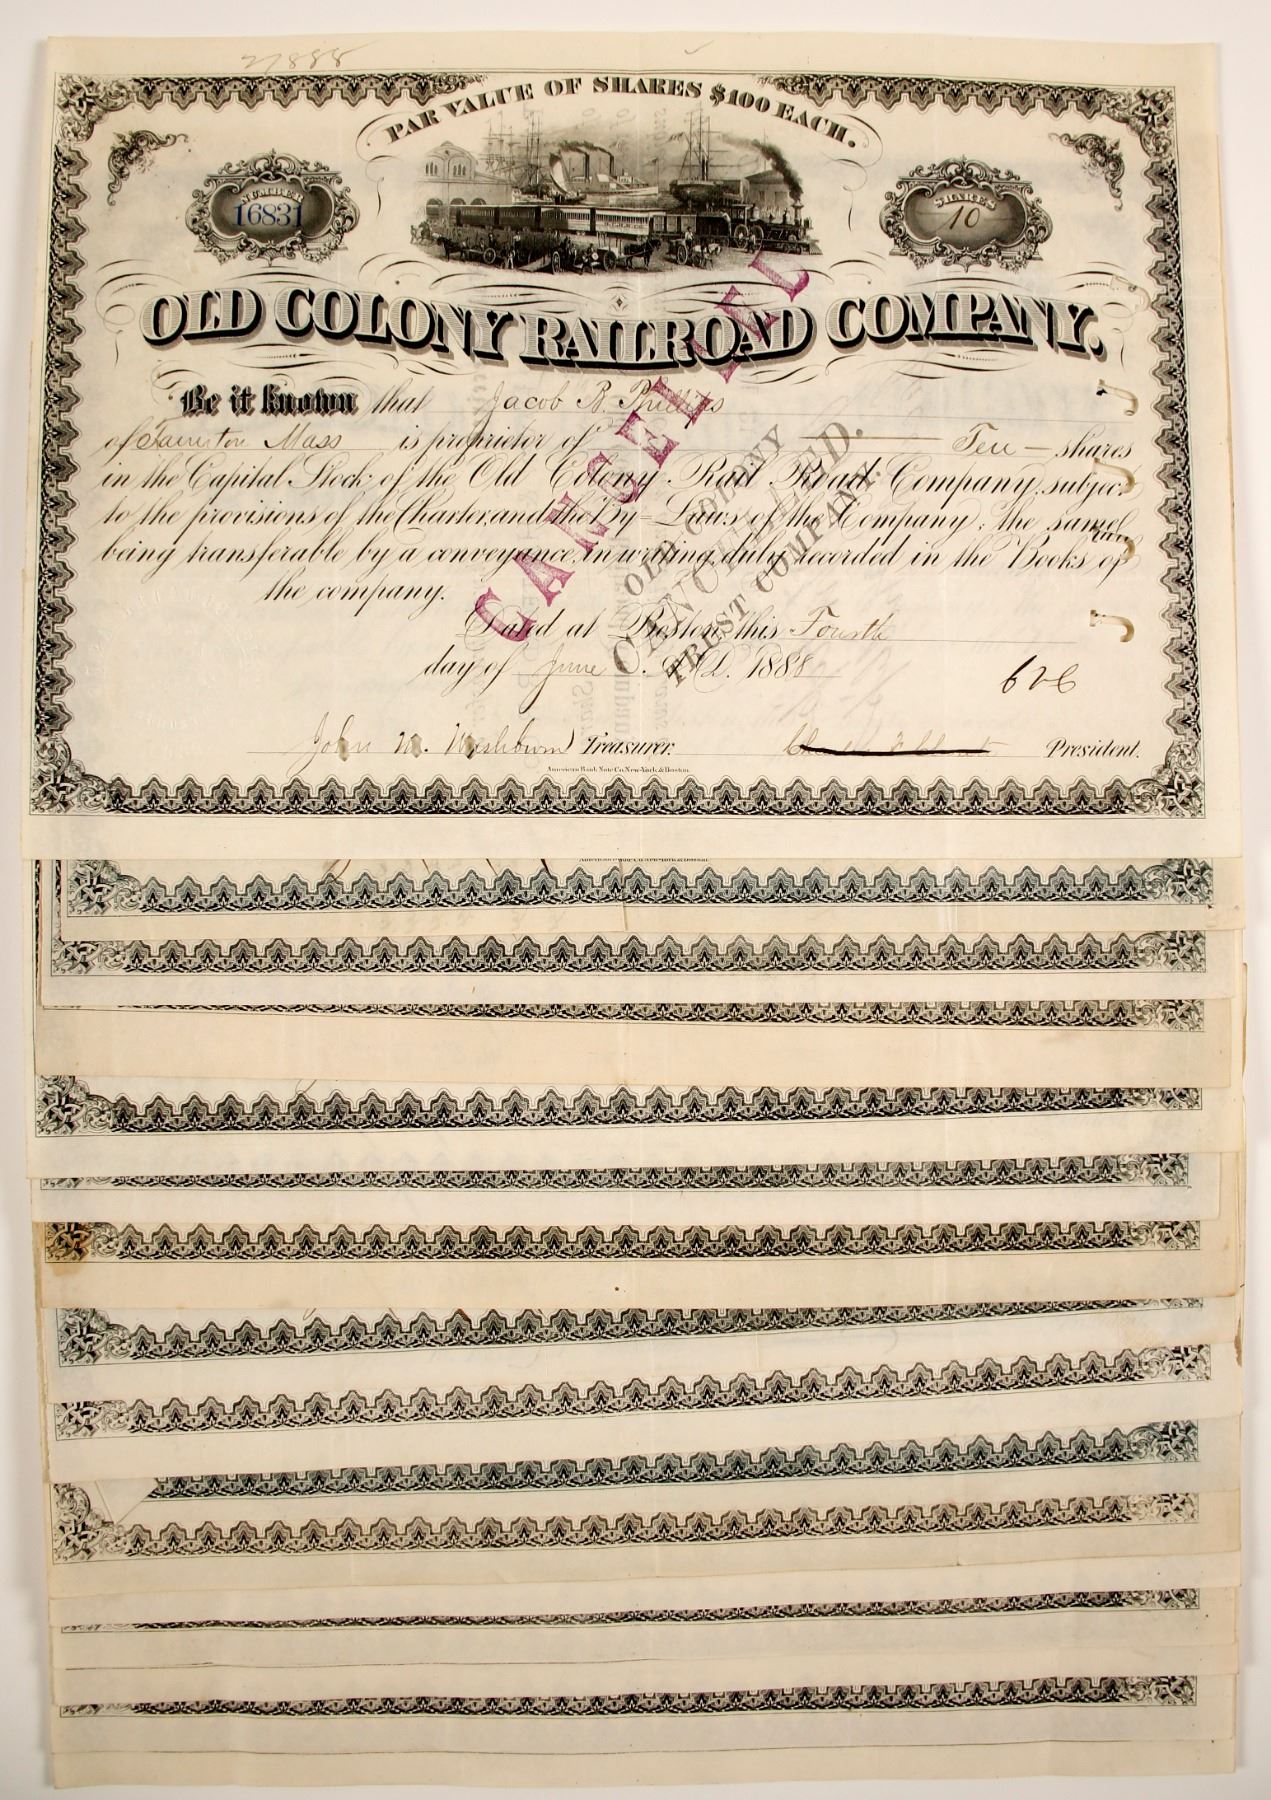 21888
PAR VALUE OF SHARES $100 EACH.
NUMBER
16831
SHARES
10
OLD COLONY RAILROAD COMPANY.
Be it known that Jacob B. Phillips
of Taunton Mass is proprietor of Ten shares
in the Capital Stock of the Old Colony Rail Road Company, subject
to the provisions of the Charter, and the By-Laws of the Company; the same
being transferable by a conveyance, in writing, duly recorded in the Books of
the company.
Dated at Boston, this Fourth
day of June A.D. 1888
626
John M. Washburn Treasurer. President.
American Bank Note Co. New-York & Boston.
CANCELLED
OLD COLONY
CANCELLED.
TRUST COMPANY